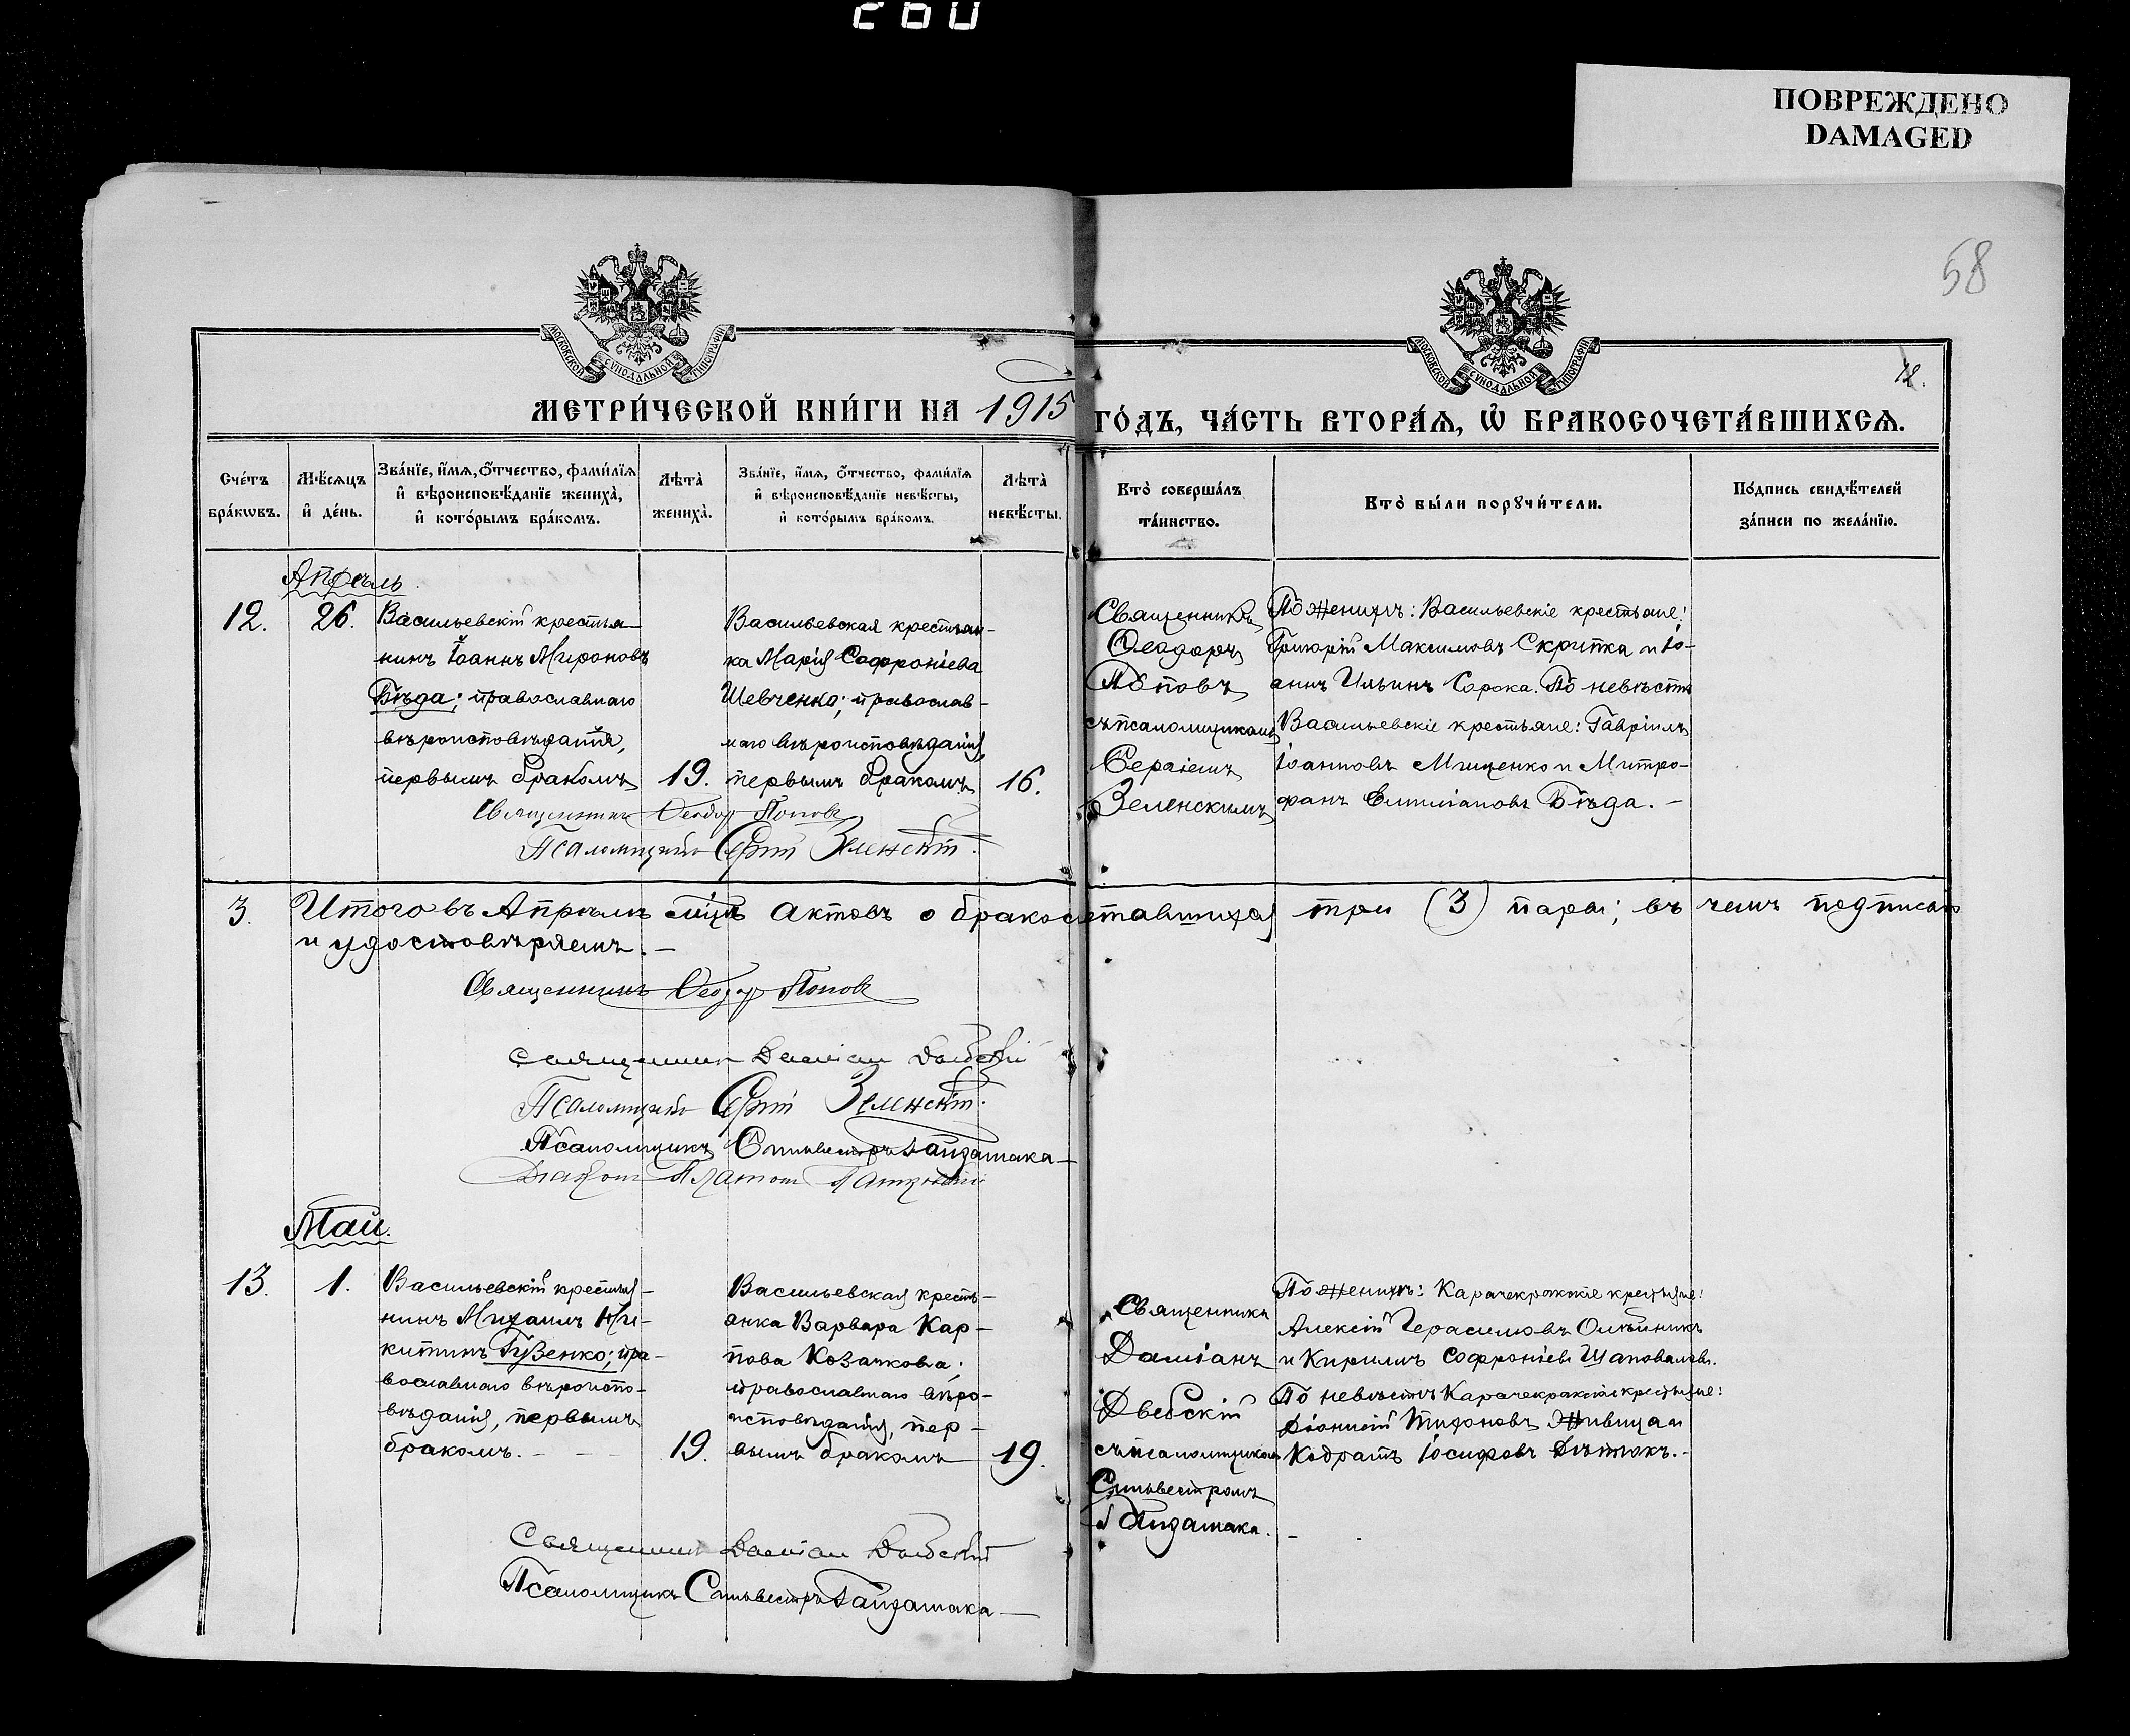 260
ПОВРЕЖДЕНО
DAMAGED
58
12.
МОСКОВСКОЙ СѴНОДАЛЬНОЙ ТИПОГРАФІИ
МОСКОВСКОЙ СѴНОДАЛЬНОЙ ТИПОГРАФІИ
МЕТРИ́ЧЕСКОЙ КНИ́ГИ НА 1915 ГО́ДЪ, ЧА́СТЬ ВТОРА́Я, Ѡ҆ БРАКОСОЧЕТА́ВШИХСЯ.
Сче́тъ
бра́кѡвъ.
Мѣ́сяцъ
и҆ де́нь.
Зва́нїе, и҆́мя, ѻ҆́тчество, фами́лїя
и҆ вѣроисповѣ́данїе жениха̀,
и҆ кото́рымъ бра́комъ.
Лѣта̀
жениха̀.
Зва́нїе, и҆́мя, ѻ҆́тчество, фами́лїя
и҆ вѣроисповѣ́данїе невѣ́сты,
и҆ кото́рымъ бра́комъ.
Лѣта̀
невѣ́сты.
Кто̀ соверша́лъ
та́инство.
Кто̀ бы́ли порꙋчи́тели.
По́дпись свидѣ́телей
за́писи по жела́нїю.
Апрѣль
12.
26.
Васильевскій крестья-
нинъ Іоаннъ Мироновъ
Бѣда; православнаго
вѣроисповѣданія,
первымъ бракомъ
19.
Васильевская крестьян-
ка Марія Софроніева
Шевченко; православ-
наго вѣроисповѣданія
первымъ бракомъ
16.
Священникъ
Ѳеодоръ
Поповъ
съ псаломщикомъ
Сергіемъ
Зеленскимъ
По женихѣ: Васильевскіе крестьяне:
Григорій Максимовъ Скрипка и Іо-
аннъ Ильинъ Сорока. По невѣстѣ
Васильевскіе крестьяне: Гавріилъ
Іоанновъ Мищенко и Митро-
фанъ Емиліановъ Бѣда. -
Священникъ Ѳеодоръ Поповъ
Псаломщикъ Сергій Зеленскій.
3.
Итого въ Апрѣлѣ мцѣ актовъ о бракосочетавшихся три (3) пары; въ чемъ подписью
и удостовѣряемъ. -
Священникъ Ѳеодоръ Поповъ
Священник Дамиан Двебскій
Псаломщикъ Сергій Зеленскій.
Псаломщикъ Сильвестръ Гайдамака
Диакон Платон
Май.
13.
1.
Васильевскій крестья-
нинъ Михаилъ Ни-
китинъ Гузенко; пра-
вославнаго вѣроиспо-
вѣданія, первымъ
бракомъ. - - -
19.
Васильевская кресть-
янка Варвара Кар-
пова Козачкова;
православнаго вѣро-
исповѣданія, пер-
вымъ бракомъ
19.
Священникъ
Даміанъ
Двебскій
съ псаломщикомъ
Сильвестромъ
Гайдамака.
По женихѣ: Карачекракскіе крестьяне:
Алексій Герасимовъ Олѣйникъ
и Кириллъ Софроніевъ Шаповаловъ.
По невѣстѣ Карачекракскіе крестьяне:
Діонисій Тихоновъ Живица и
Кодратъ Іосифовъ Дѣтокъ. -
Священник Дамиан Двебский
Псаломщикъ Сильвестръ Гайдамака